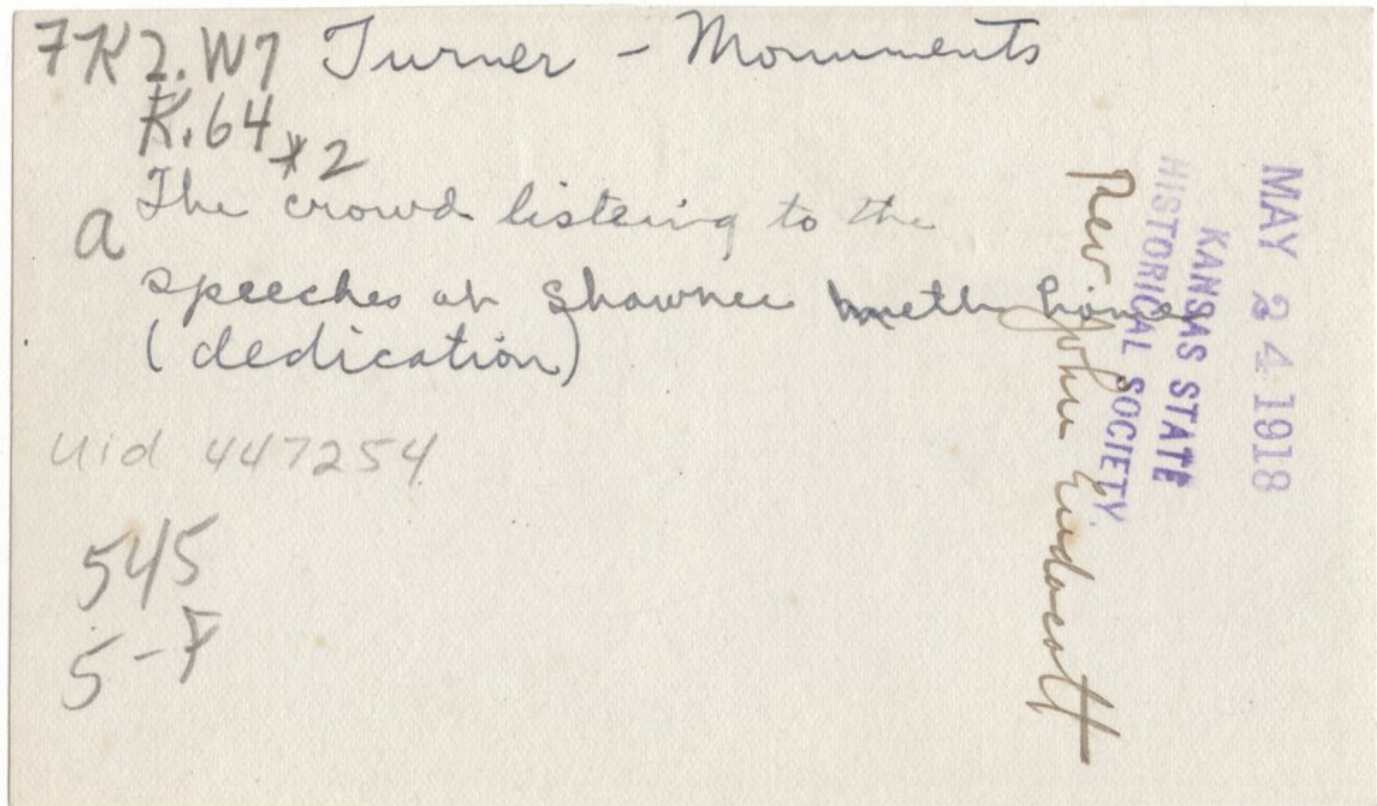 7K2.W7 Turner - Monuments
K.64 *2
a The crowd listening to the
speeches at Shawnee meth home
(dedication)
uid 447254
545
5-F
Rev John Endacott
HISTORICAL SOCIETY.
KANSAS STATE
MAY 24 1918